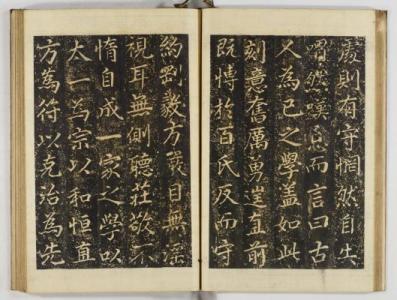 處則有守惘然自失
喟然嘆息而言曰古
人為己之學盖如此
刻意奮厲勇直前
既博於百氏反而守
約剛毅方嚴目無淫
視耳無側聽莊敬不
惰自成一家之學以
太一為宗以和恒直
方為符以克治為先